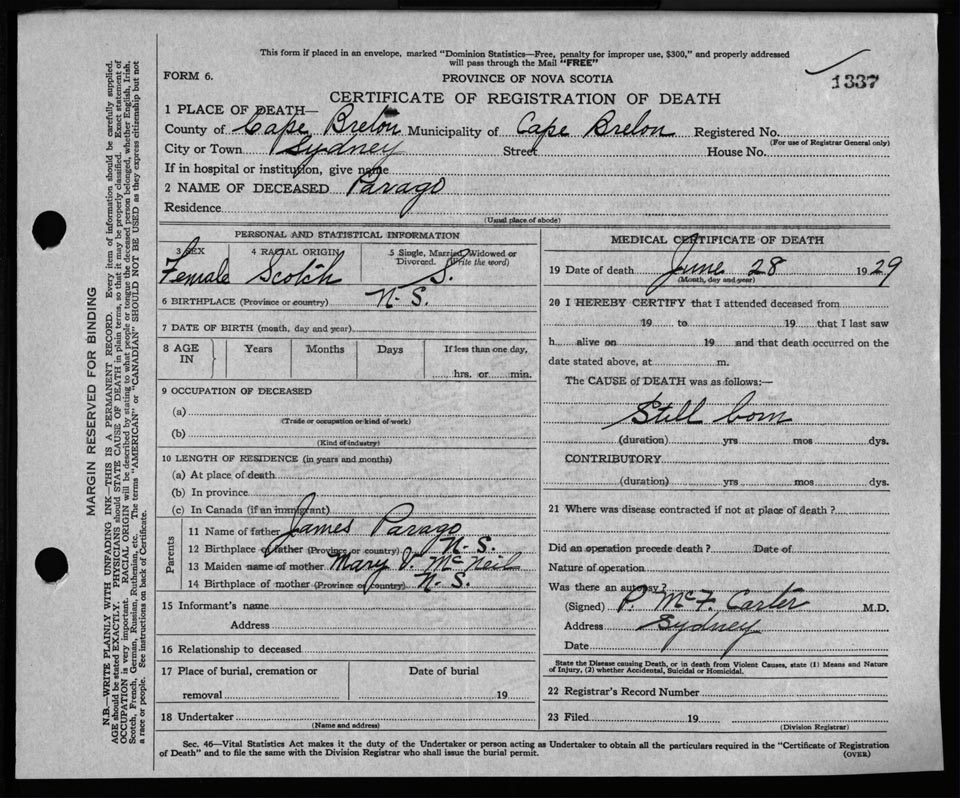 This form if placed in an envelope, marked "Dominion Statistics—Free, penalty for improper use, $300," and properly addressed
will pass through the Mail "FREE"
FORM 6.
PROVINCE OF NOVA SCOTIA
1337
CERTIFICATE OF REGISTRATION OF DEATH
1 PLACE OF DEATH—
County of Cape Breton Municipality of Cape Breton Registered No.
(For use of Registrar General only)
City or Town Sydney Street House No.
If in hospital or institution, give name
2 NAME OF DECEASED Parago
Residence
(Usual place of abode)
PERSONAL AND STATISTICAL INFORMATION
3 SEX 4 RACIAL ORIGIN 5 Single, Married, Widowed or
Divorced. (Write the word)
Female Scotch S.
6 BIRTHPLACE (Province or country) N. S.
7 DATE OF BIRTH (month, day and year)
8 AGE IN Years Months Days If less than one day,
hrs. or min.
9 OCCUPATION OF DECEASED
(a)
(Trade or occupation or kind of work)
(b)
(Kind of industry)
10 LENGTH OF RESIDENCE (in years and months)
(a) At place of death
(b) In province
(c) In Canada (if an immigrant)
Parents
11 Name of father James Parago
12 Birthplace of father (Province or country) N. S.
13 Maiden name of mother Mary J. McNeil
14 Birthplace of mother (Province or country) N. S.
15 Informant's name
Address
16 Relationship to deceased
17 Place of burial, cremation or Date of burial
removal 19
18 Undertaker
(Name and address)
MEDICAL CERTIFICATE OF DEATH
19 Date of death June 28 1929
(Month, day and year)
20 I HEREBY CERTIFY that I attended deceased from
19 to 19 that I last saw
h alive on 19 and that death occurred on the
date stated above, at m.
The CAUSE of DEATH was as follows:—
Still born
(duration) yrs mos dys.
CONTRIBUTORY
(duration) yrs mos dys.
21 Where was disease contracted if not at place of death?
Did an operation precede death? Date of
Nature of operation
Was there an autopsy?
(Signed) P. McF. Carter M.D.
Address Sydney
Date
State the Disease causing Death, or in death from Violent Causes, state (1) Means and Nature
of Injury, (2) whether Accidental, Suicidal or Homicidal.
22 Registrar's Record Number
23 Filed 19
(Division Registrar)
Sec. 46—Vital Statistics Act makes it the duty of the Undertaker or person acting as Undertaker to obtain all the particulars required in the "Certificate of Registration
of Death" and to file the same with the Division Registrar who shall issue the burial permit. (OVER)
MARGIN RESERVED FOR BINDING
N.B.—WRITE PLAINLY WITH UNFADING INK—THIS IS A PERMANENT RECORD. Every item of information should be carefully supplied.
AGE should be stated EXACTLY. PHYSICIANS should STATE CAUSE OF DEATH in plain terms, so that it may be properly classified. Exact statement of
OCCUPATION is very important. RACIAL ORIGIN will be described by stating to what people or tongue the deceased person belonged, whether English, Irish,
Scotch, French, German, Russian, Ruthenian, etc. The terms "AMERICAN" or "CANADIAN" SHOULD NOT BE USED as they express citizenship but not
a race or people. See instructions on back of Certificate.